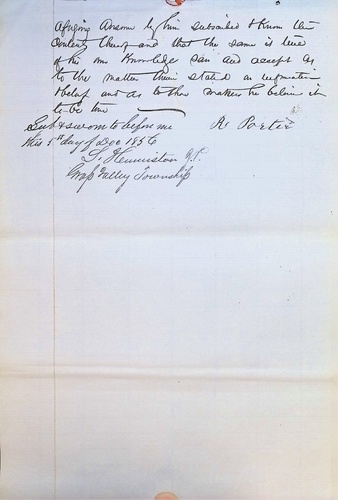 afgoing Answer by him subscribed & Know the
Contents thereof and that the same is true
of his own Knowledge save and except as
to the matters therein stated on information
& belief and as to those matters he believes it
to be true
Sub & sworn to before me R Porter
this 1st day of Dec 1856
S. Henniston J.P.
Grass Valley Township